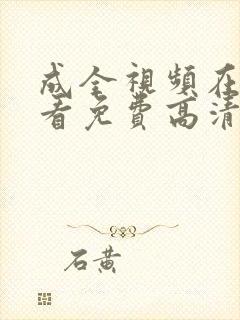 成全視頻在
看免費高清
石黃